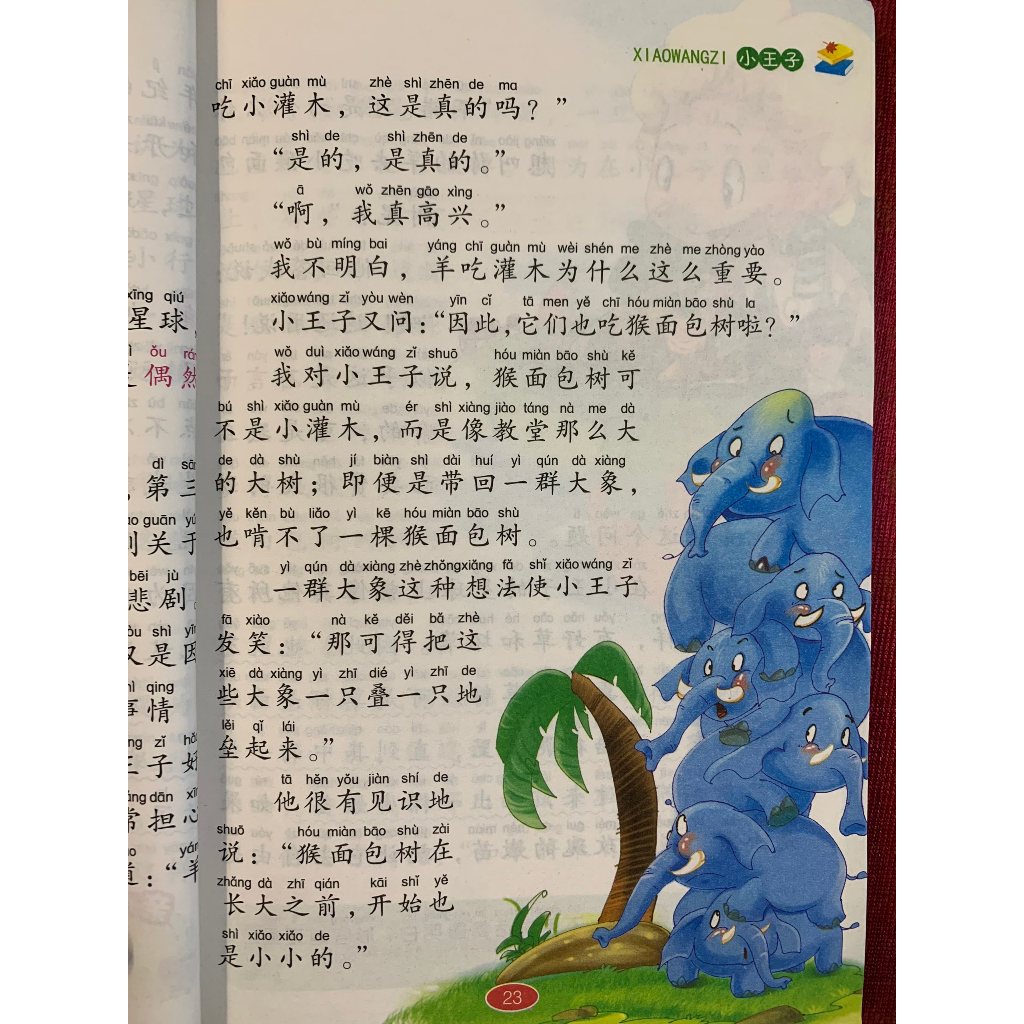 xīng qiú
星球,
ǒu
偶然
dì
第三
guān
关于
bēi jù
悲剧。
shì
又是因
qing
事情
zǐ
王子好
dān
常担心
道：“羊
XIAOWANGZI 小王子
chī xiǎo guàn mù zhè shì zhēn de ma
吃小灌木，这是真的吗？”
shì de shì zhēn de
“是的，是真的。”
ā wǒ zhēn gāo xìng
“啊，我真高兴。”
wǒ bù míng bai yáng chī guàn mù wèi shén me zhè me zhòng yào
我不明白，羊吃灌木为什么这么重要。
xiǎo wáng zǐ yòu wèn yīn cǐ tā men yě chī hóu miàn bāo shù la
小王子又问：“因此，它们也吃猴面包树啦？”
wǒ duì xiǎo wáng zǐ shuō hóu miàn bāo shù kě
我对小王子说，猴面包树可
bú shì xiǎo guàn mù ér shì xiàng jiào táng nà me dà
不是小灌木，而是像教堂那么大
de dà shù jí biàn shì dài huí yì qún dà xiàng
的大树；即便是带回一群大象，
yě kěn bù liǎo yì kē hóu miàn bāo shù
也啃不了一棵猴面包树。
yì qún dà xiàng zhè zhǒng xiǎng fǎ shǐ xiǎo wáng zǐ
一群大象这种想法使小王子
fā xiào nà kě děi bǎ zhè
发笑：“那可得把这
xiē dà xiàng yì zhī dié yì zhī de
些大象一只叠一只地
lěi qǐ lái
垒起来。”
tā hěn yǒu jiàn shí de
他很有见识地
shuō hóu miàn bāo shù zài
说：“猴面包树在
zhǎng dà zhī qián kāi shǐ yě
长大之前，开始也
shì xiǎo xiǎo de
是小小的。”
23